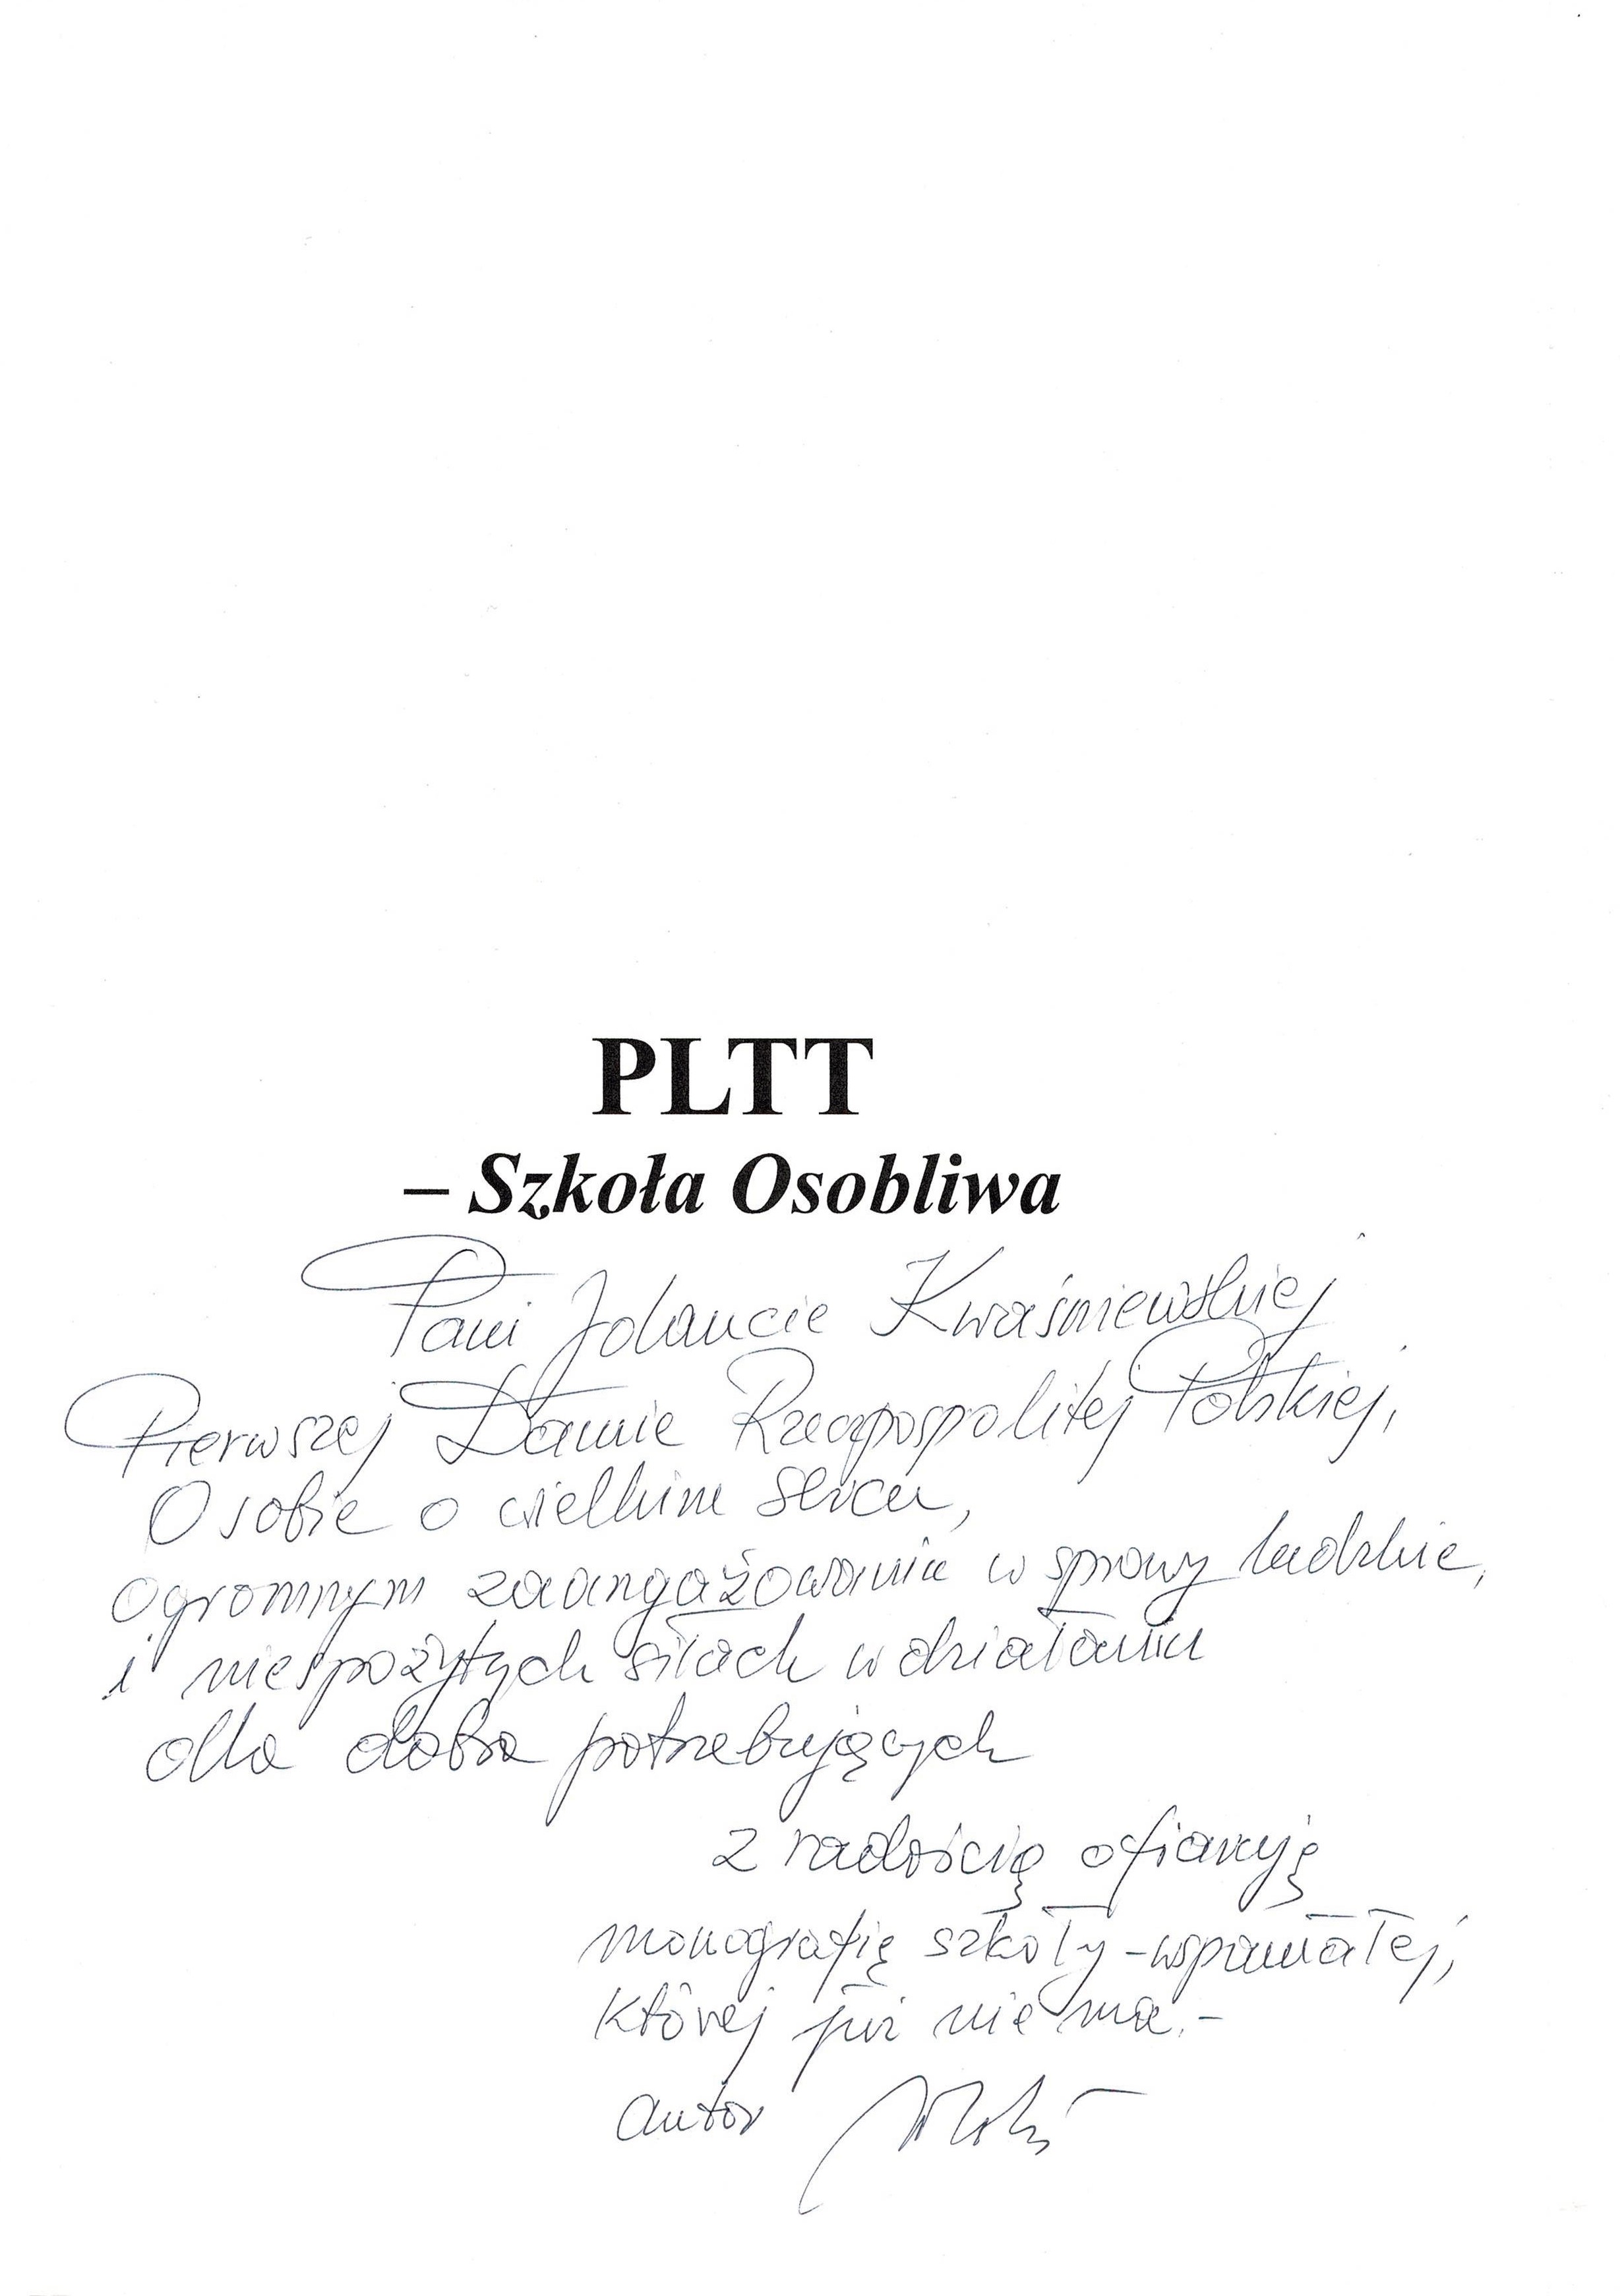 PLTT
– Szkoła Osobliwa
Pani Jolancie Kwaśniewskiej
Pierwszej Damie Rzeczpospolitej Polskiej,
Osobie o wielkim sercu,
ogromnym zaangażowaniu w sprawy ludzkie,
i niespożytych siłach w działaniu
dla dobra potrzebujących
z radością ofiaruję
monografię szkoły - wspaniałej,
której już nie ma.-
autor